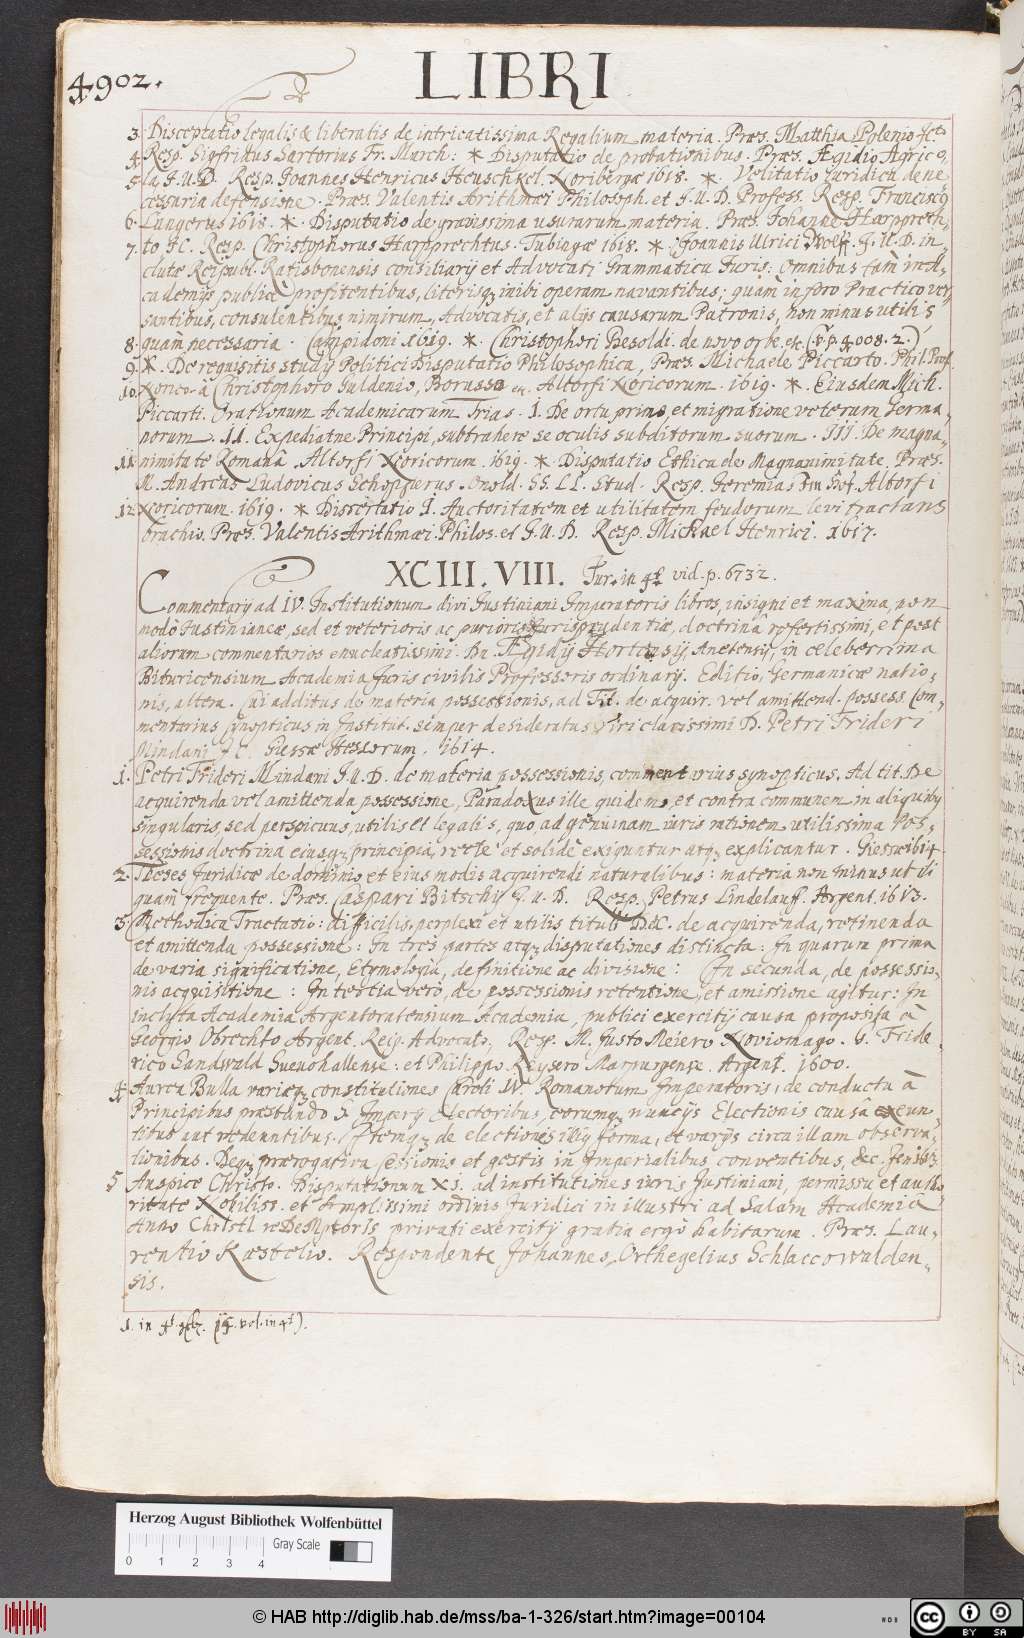 4902.
LIBRI
3. Disceptatio legalis & liberalis de intricatissima Regalium materia. Præs. Matthia Polenio Jcto
4. Resp. Sigfridus Sartorius Fr. March: * Disputatio de probationibus. Præs. Ægidio Agrico
5. la J.U.D. Resp. Joannes Henricus Heuschkel. Noribergæ 1618. *. Velitatio Juridica de ne
cessaria defensione. Præs. Valentis Arithmæi Philosoph. et J.U.D. Profess. Resp. Francisc9
6. Lungerus 1618. *. Disputatio de gravissima usurarum materia. Præs. Johanne Harpprech-
7. to JC. Resp. Christophorus Harpprechtus. Tubingæ 1618. * Joannis Ulrici Wolff. J.U.D. in
clutæ Reipubl. Ratisbonensis consiliarij et Advocati Grammatica Juris: Omnibus tam in A-
cademijs publicè profitentibus, literisq3 inibi operam navantibus; quam in foro Practico ver
santibus, consulentibus nimirum, Advocatis, et alijs causarum Patronis, non minus utilis
8. quam necessaria. Campidoni 1619. *. Christophori Besoldi. de novo orbe. etc. (v. p. 4008. 2.)
9. *. De requisitis studij Politici Disputatio Philosophica, Præs. Michaele Piccarto. Phil. Prof.
10. Christophoro Guldenio, Borusso Altorfi Noricorum. 1619. *. Eiusdem Mich.
Piccarti. Orationum Academicarum Trias. I. De ortu primo, et migratione veterum Germa-
norum. II. Expediatne Principi, subtrahere se oculis subditorum suorum. III. De magna-
11. nimitate Romanâ. Altorfi Noricorum. 1619. *. Disputatio Ethica de Magnanimitate. Præs.
M. Andreas Ludovicus Schopperus. Onold. SS. LL. Stud. Resp. Jeremias Altorfi
12. Noricorum. 1619. * Dissertatio I. Auctoritatem et utilitatem feudorum levi tractans
brachio. Præs. Valentis Arithmæi. Philos. et J.U.D. Resp. Michael Henrici. 1617.
XCIII. VIII. Jur. in 4t vid. p. 6732.
Commentarij ad IV. Institutionum divi Justiniani Imperatoris libros, insigni et maxima, non
modò Justinianeæ, sed et veterioris ac purioris Jurisprudentiæ, doctrinâ refertissimi, et post
aliorum commentarios enucleatissimi. Dn. Ægidij Hortensij, Anetensij, in celeberrima
Bituricensium Academia juris civilis Professoris ordinarij. Editio, Germanicæ natio-
nis, altera. Cui additus de materia possessionis, ad Tit. de acquir. vel amittend. possess. Com-
mentarius synopticus in Institut. semper desideratus Viri clarissimi D. Petri Frideri
Mindani JC. Giessæ Hessorum. 1614.
1. Petri Frideri Mindani J.U.D. de materia possessionis, commentarius synopticus. Ad tit. De
acquirenda vel amittenda possessione, Paradoxus ille quidem, et contra communem in aliquib9
singularis, sed perspicuus, utilis et legalis, quo, ad genuinam iuris rationem utilissima Pos-
sessionis doctrina eiusq3 principia, rectè et solidè exiguntur atq3 explicantur. Giessæ 1614.
2. Theses Juridicæ de dominio et eius modis acquirendi naturalibus: materia non minus utili
quam frequente. Præs. Caspari Bitschij J.U.D. Resp. Petrus Lindelauff. Argent. 1613.
3. Methodica Tractatio: difficilis, perplexi et utilis tituli D. et C. de acquirenda, retinenda
et amittenda possessione: In tres partes atq3 disputationes distincta: In quarum prima
de varia significatione, Etymologia, definitione ac divisione: In secunda, de possessio-
nis acquisitione: In tertia verò, de possessionis retentione, et amissione agitur: In
inclyta Academia Argentoratensium Academia, publici exercitij causa proposita â
Georgio Obrechto Argent. Reip. Advocato, Resp. M. Justo Meiero Noviomago. G. Fride-
rico Sandwald Suevohallense: et Philippo Keysero Marpurgense. Argent. 1600.
4. Aurea Bulla variæq3 constitutiones Caroli IV. Romanorum Imperatoris, de conductu â
Principibus præstando S. Imperij Electoribus, eorumq3 nuncijs Electionis causâ exeun-
tibus aut redeuntibus. Itemq3 de electionis illi9 forma, et varijs circa illam observa-
tionibus. Deq3 prærogativa sessionis et gestis in Imperialibus conventibus, &c. Jenæ
5. Auspice Christo. Disputationum XI. ad institutiones iuris Justiniani, permissu et autho
ritate Nobiliss. et Amplissimi ordinis Juridici in illustri ad Salam Academiâ
Anno ChrIstI reDeMptorIs privati exercitij gratia ergò habitarum. Præs. Lau-
rentio Kæstelio. Respondente Johannes Orthegelius Schlaccowalden-
sis.
1. in 4t (4. vol. in 4t).
Herzog August Bibliothek Wolfenbüttel
0 1 2 3 4
Gray Scale
© HAB http://diglib.hab.de/mss/ba-1-326/start.htm?image=00104
WDB
cc BY SA